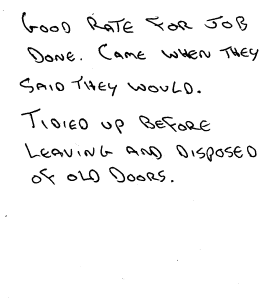 GOOD RATE FOR JOB
DONE. CAME WHEN THEY
SAID THEY WOULD.
TIDIED UP BEFORE
LEAVING AND DISPOSED
OF OLD DOORS.